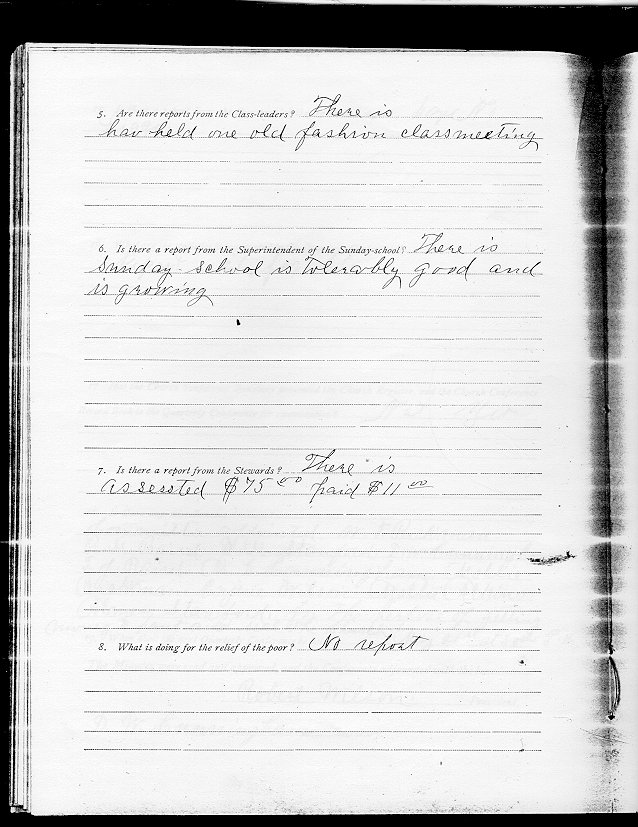 5. Are there reports from the Class-leaders? There is
hav held one old fashion classmeeting
6. Is there a report from the Superintendent of the Sunday-school? There is
Sunday-school is tolerably good and
is growing
7. Is there a report from the Stewards? There is
assessted $75 00 paid $11 00
8. What is doing for the relief of the poor? No report